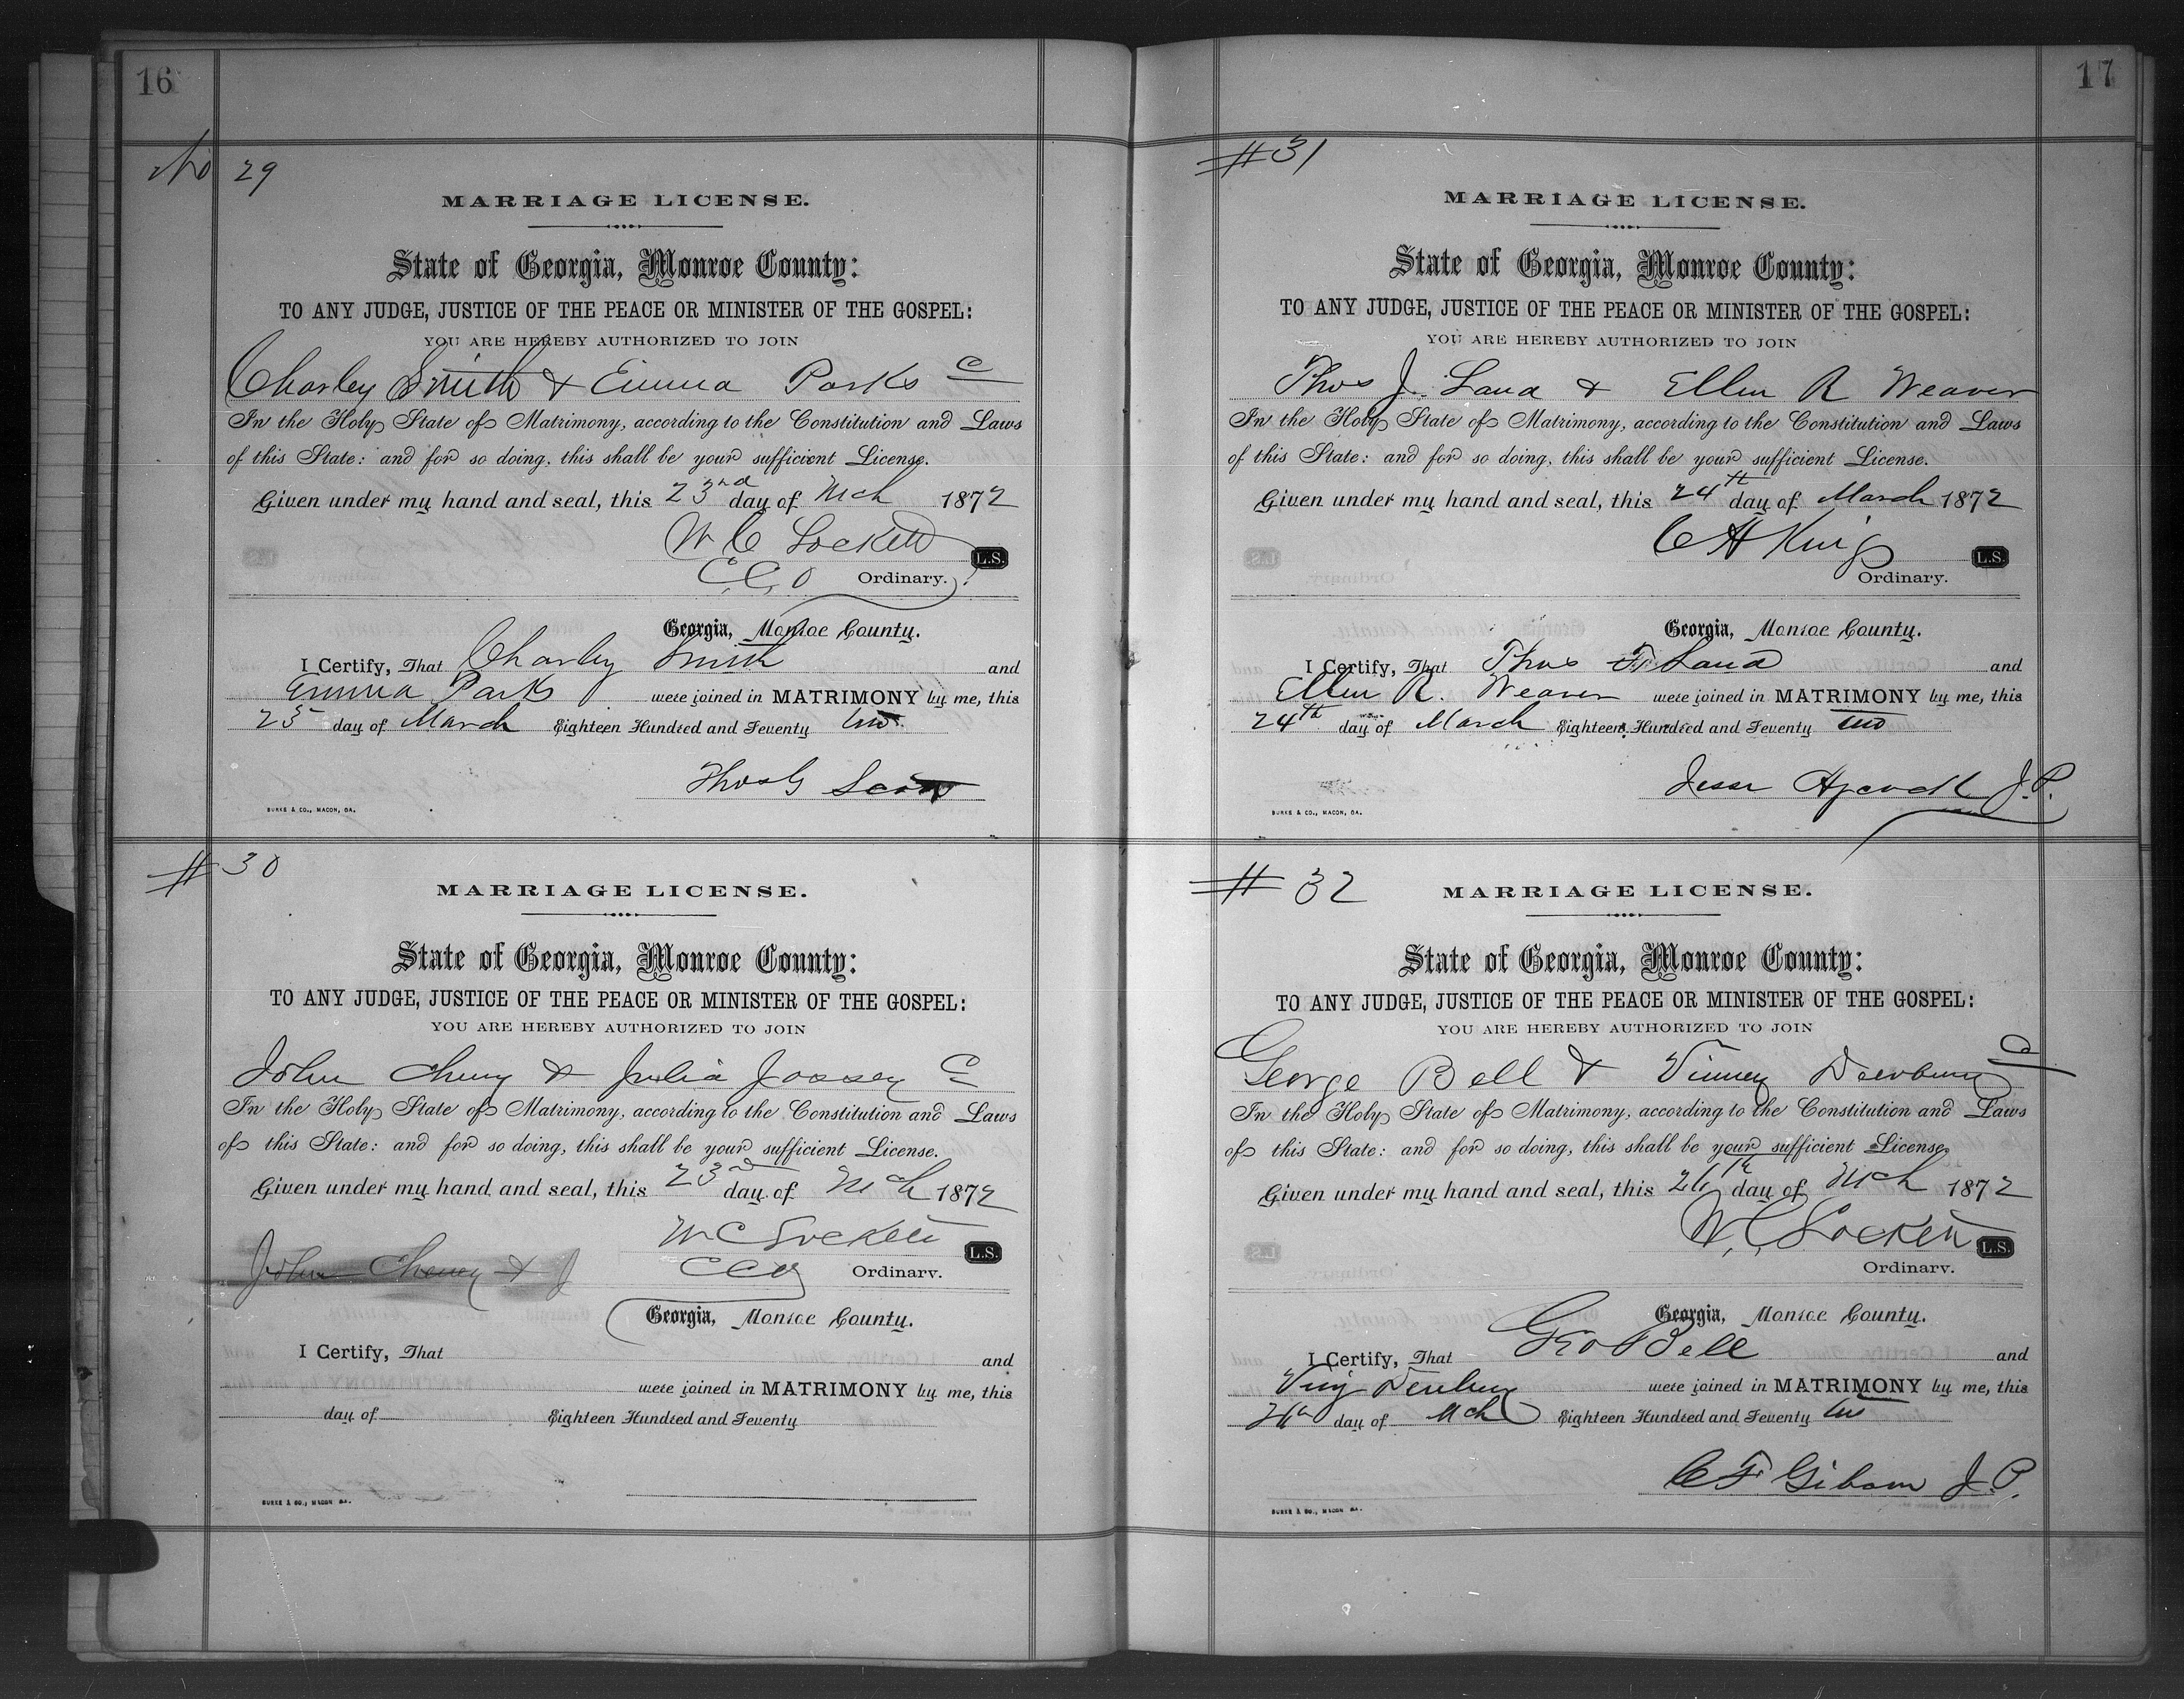 16
No 29
MARRIAGE LICENSE.
State of Georgia, Monroe County:
TO ANY JUDGE, JUSTICE OF THE PEACE OR MINISTER OF THE GOSPEL:
YOU ARE HEREBY AUTHORIZED TO JOIN
Charley Smith & Emma Parks C
In the Holy State of Matrimony, according to the Constitution and Laws
of this State: and for so doing, this shall be your sufficient License.
Given under my hand and seal, this 23rd day of Mch 1872
W C Lockett L.S.
C.C.O Ordinary.
Georgia, Monroe County.
I Certify, That Charley Smith and
Emma Parks were joined in MATRIMONY by me, this
25 day of March Eighteen Hundred and Seventy two.
Thos G Scott
BURKE & CO., MACON, GA.
# 30
MARRIAGE LICENSE.
State of Georgia, Monroe County:
TO ANY JUDGE, JUSTICE OF THE PEACE OR MINISTER OF THE GOSPEL:
YOU ARE HEREBY AUTHORIZED TO JOIN
John Cheny & Julia Jossey C
In the Holy State of Matrimony, according to the Constitution and Laws
of this State: and for so doing, this shall be your sufficient License.
Given under my hand and seal, this 23d day of Mch 1872
W C Lockett L.S.
John Cheney & J
CCO Ordinary.
Georgia, Monroe County.
I Certify, That and
were joined in MATRIMONY by me, this
day of Eighteen Hundred and Seventy
BURKE & CO., MACON GA.
17
# 31
MARRIAGE LICENSE.
State of Georgia, Monroe County:
TO ANY JUDGE, JUSTICE OF THE PEACE OR MINISTER OF THE GOSPEL:
YOU ARE HEREBY AUTHORIZED TO JOIN
Thos J. Land & Ellen R Weaver
In the Holy State of Matrimony, according to the Constitution and Laws
of this State: and for so doing, this shall be your sufficient License.
Given under my hand and seal, this 24th day of March 1872
C H King L.S.
Ordinary.
Georgia, Monroe County.
I Certify, That Thos F. Land and
Ellen R. Weaver were joined in MATRIMONY by me, this
24th day of March Eighteen Hundred and Seventy two
Jesse J.P.
BURKE & CO., MACON, GA.
# 32
MARRIAGE LICENSE.
State of Georgia, Monroe County:
TO ANY JUDGE, JUSTICE OF THE PEACE OR MINISTER OF THE GOSPEL:
YOU ARE HEREBY AUTHORIZED TO JOIN
George Bell & Vinney C
In the Holy State of Matrimony, according to the Constitution and Laws
of this State: and for so doing, this shall be your sufficient License.
Given under my hand and seal, this 26th day of Mch 1872
W. C. Lockett L.S.
Ordinary.
Georgia, Monroe County.
I Certify, That Geo Bell and
were joined in MATRIMONY by me, this
26th day of Mch Eighteen Hundred and Seventy two
C F Gibson J.P.
BURKE & CO., MACON GA.